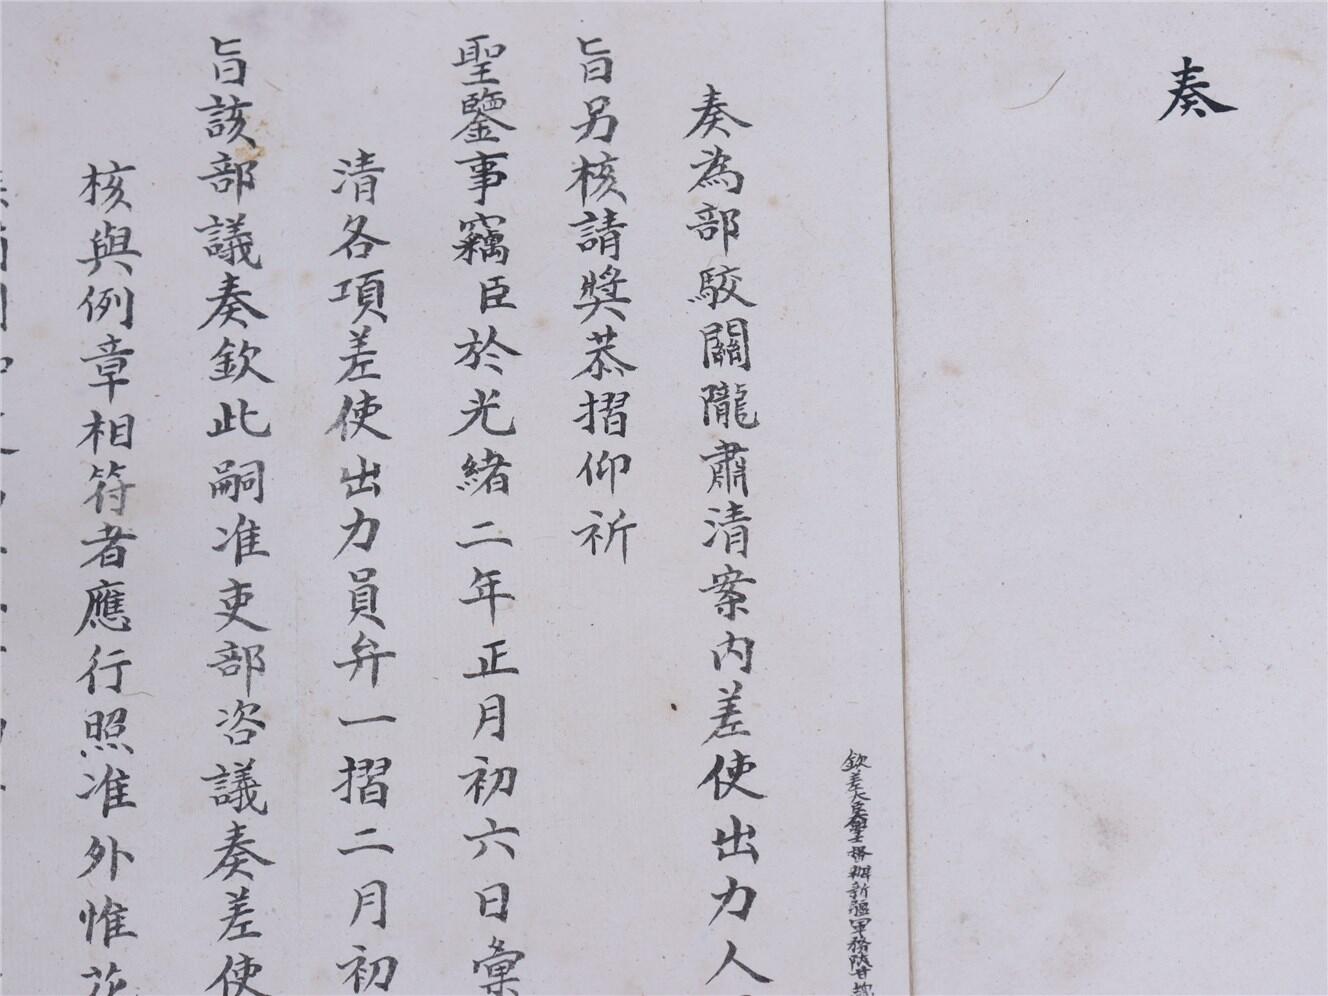 奏
欽差大臣大學士督辦新疆軍務陝甘總
奏為部駮關隴肅清案內差使出力人
旨另核請獎恭摺仰祈
聖鑒事竊臣於光緒二年正月初六日彙
清各項差使出力員弁一摺二月初
旨該部議奏欽此嗣准吏部咨議奏差使
核與例章相符者應行照准外惟花